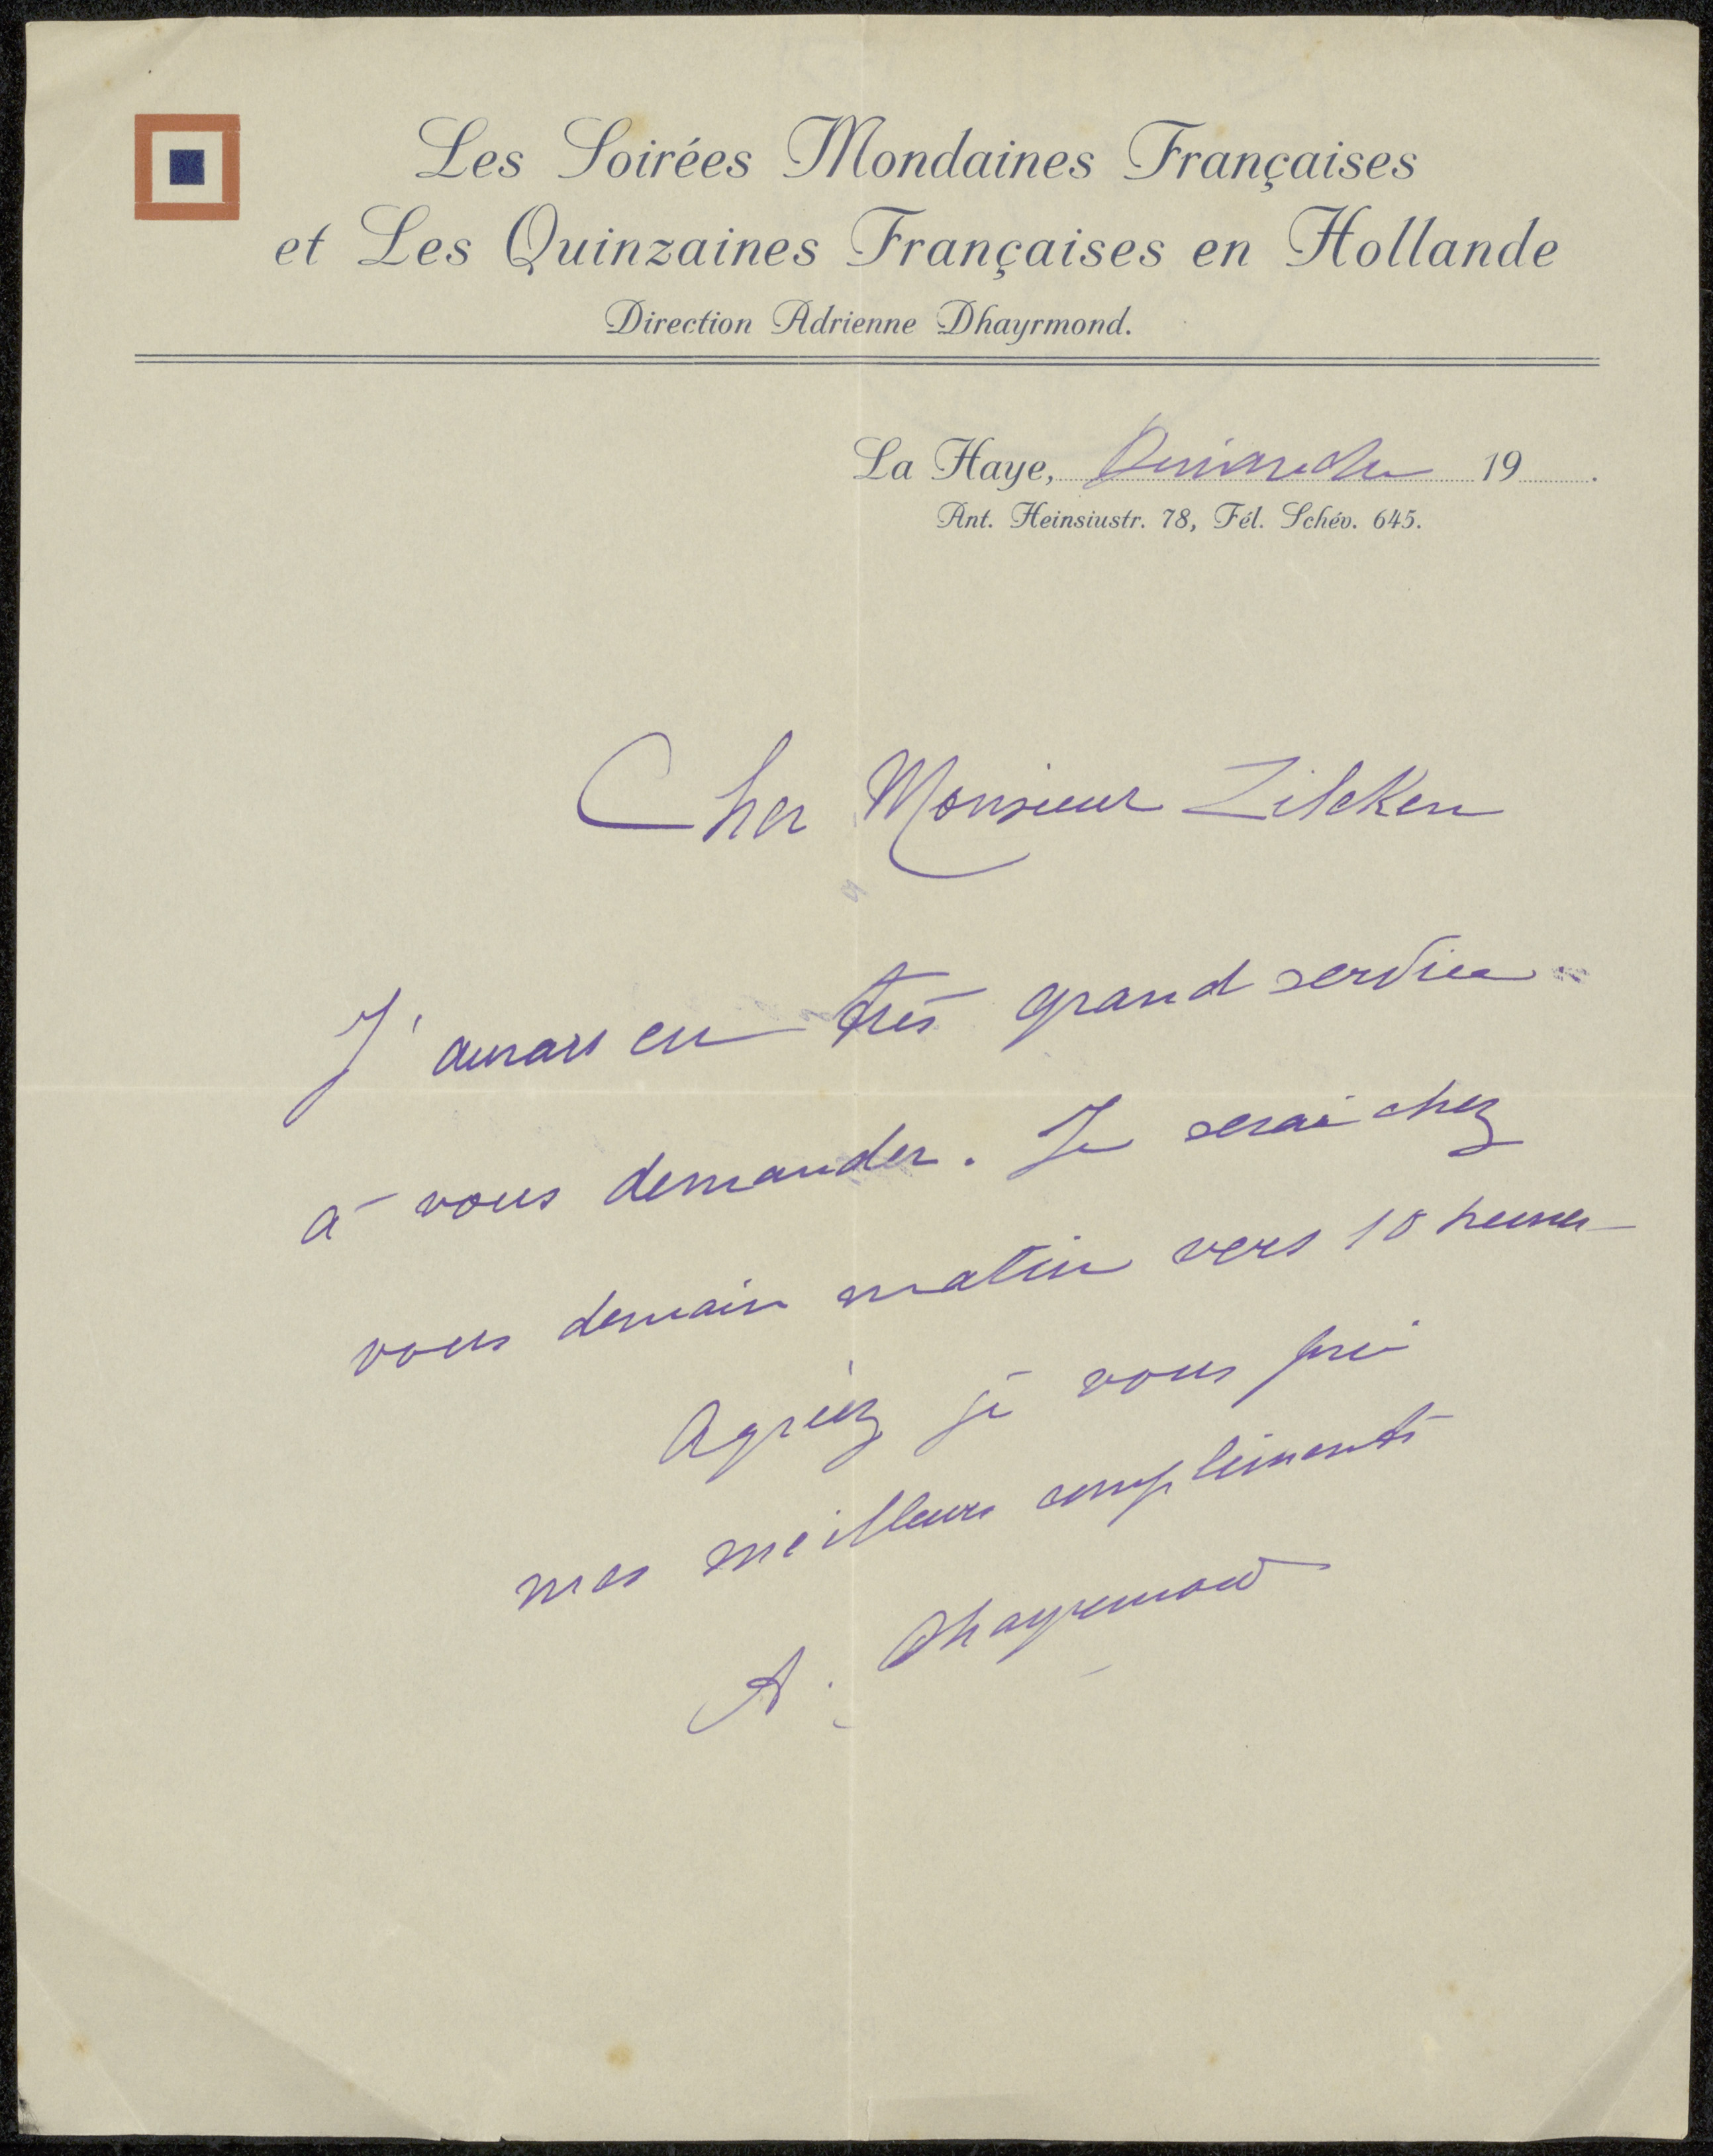 Les Soirées Mondaines Françaises
et Les Quinzaines Françaises en Hollande
Direction Adrienne Dhayrmond.
La Haye, Dimanche 19 .
Ant. Heinsiustr. 78, Tél. Schév. 645.
Cher Monsieur Zilcken
J'aurais un très grand service
à vous demander. Je serai chez
vous demain matin vers 10 heures
Agréez je vous prie
mes meilleurs compliments
A. Dhayrmond